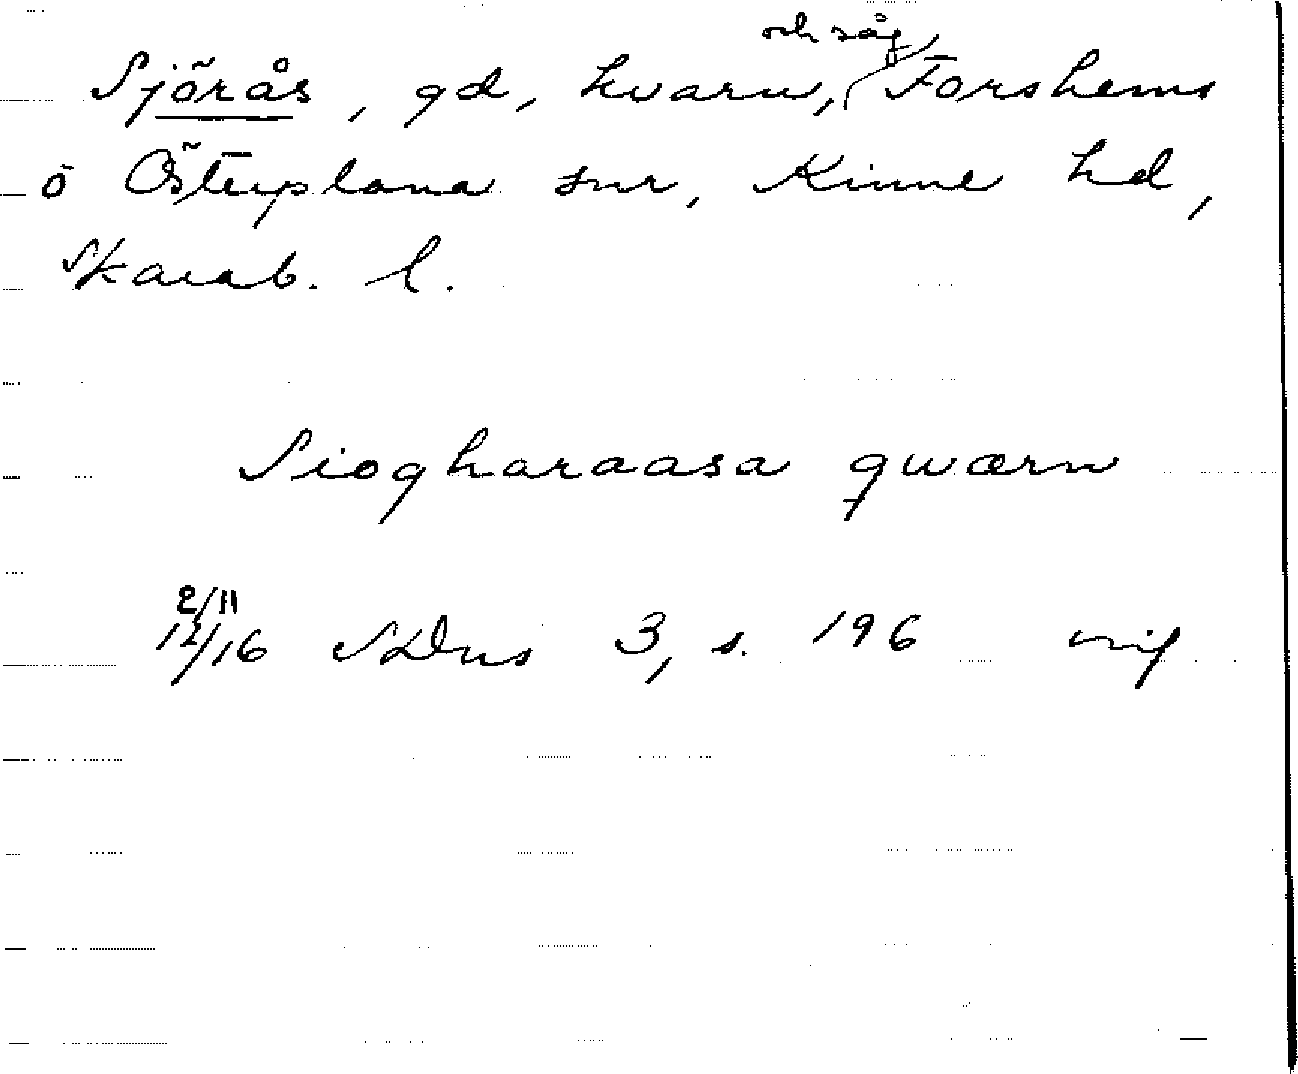 Sjörås, gd, kvarn, och såg, Forshems
o Österplana snr, Kinne hd,
Skarab. l.
Siogharaasa qwærn
2/11
12/16 SDns 3, s. 196 orig